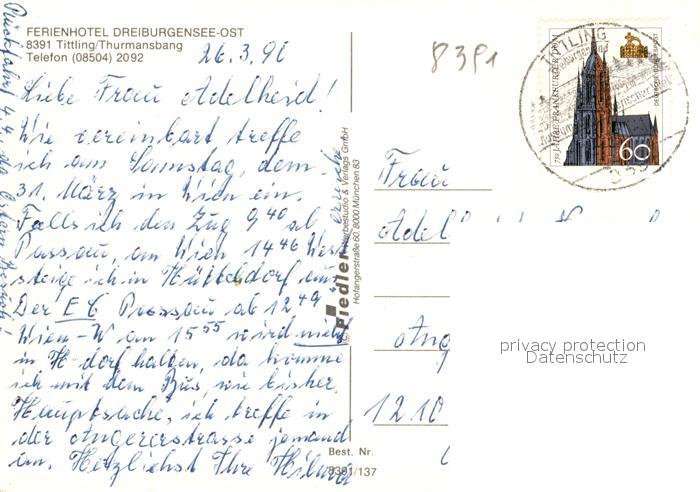 FERIENHOTEL DREIBURGENSEE-OST
8391 Tittling/Thurmansbang
Telefon (08504) 2092
26.3.90
8391
Liebe Frau Adelheid!
Wie vereinbart treffe
ich am Samstag, dem
31. März in Wien ein.
Falls ich den Zug 9 40 ab
Passau, an Wien 14 46 West
steige ich in Hütteldorf aus.
Der EC Passau ab 12 49
Wien-W an 15 55 wird nicht
in H'dorf halten, da komme
ich mit dem Bus, wie bisher.
Hauptsache, ich treffe in
der Angererstrasse jemand
an. Herzlichst Ihre
Rückfahrt 4.4.
Frau
Adel
Ang
1210
Fiedler Werbestudio & Verlags GmbH
Hofangerstraße 60, 8000 München 83
Best. Nr.
8391/137
TITTLING
750 JAHRE FRANKFURTER DOM
DEUTSCHE BUNDESPOST
60
privacy protection
Datenschutz